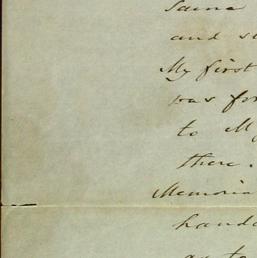 Same
and s
My first
was for
to My
there.
Memoria
hand
as to